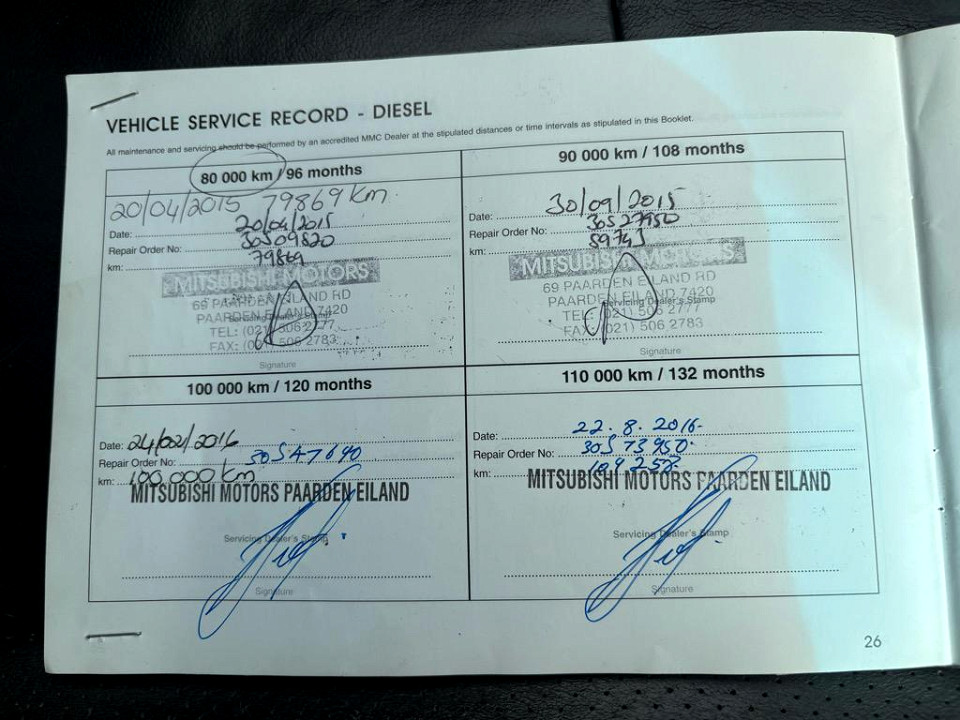 VEHICLE SERVICE RECORD - DIESEL
All maintenance and servicing should be performed by an accredited MMC Dealer at the stipulated distances or time intervals as stipulated in this Booklet.
80 000 km / 96 months
20/04/2015 79869 km.
Date: 20/04/2015
Repair Order No: 30S09820
km: 79869
MITSUBISHI MOTORS
69 PAARDEN EILAND RD
PAARDEN EILAND 7420
Servicing Dealer's Stamp
TEL: (021) 506 2777
FAX: (021) 506 2783
Signature
90 000 km / 108 months
30/09/2015
Date:
Repair Order No: 30S27950
km:
MITSUBISHI MOTORS
69 PAARDEN EILAND RD
PAARDEN EILAND 7420
Servicing Dealer's Stamp
TEL: (021) 506 2777
FAX: (021) 506 2783
Signature
100 000 km / 120 months
Date: 24/02/2016
Repair Order No: 30S47690
km: 100 000 km
MITSUBISHI MOTORS PAARDEN EILAND
Servicing Dealer's Stamp
Signature
110 000 km / 132 months
Date: 22.8.2016.
Repair Order No: 30S73950.
km: 109257.
MITSUBISHI MOTORS PAARDEN EILAND
Servicing Dealer's Stamp
Signature
26